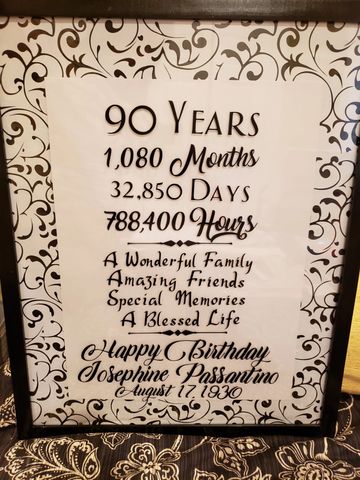 90 Years
1,080 Months
32,850 Days
788,400 Hours
A Wonderful Family
Amazing Friends
Special Memories
A Blessed Life
Happy Birthday
Josephine Passantino
August 17, 1930